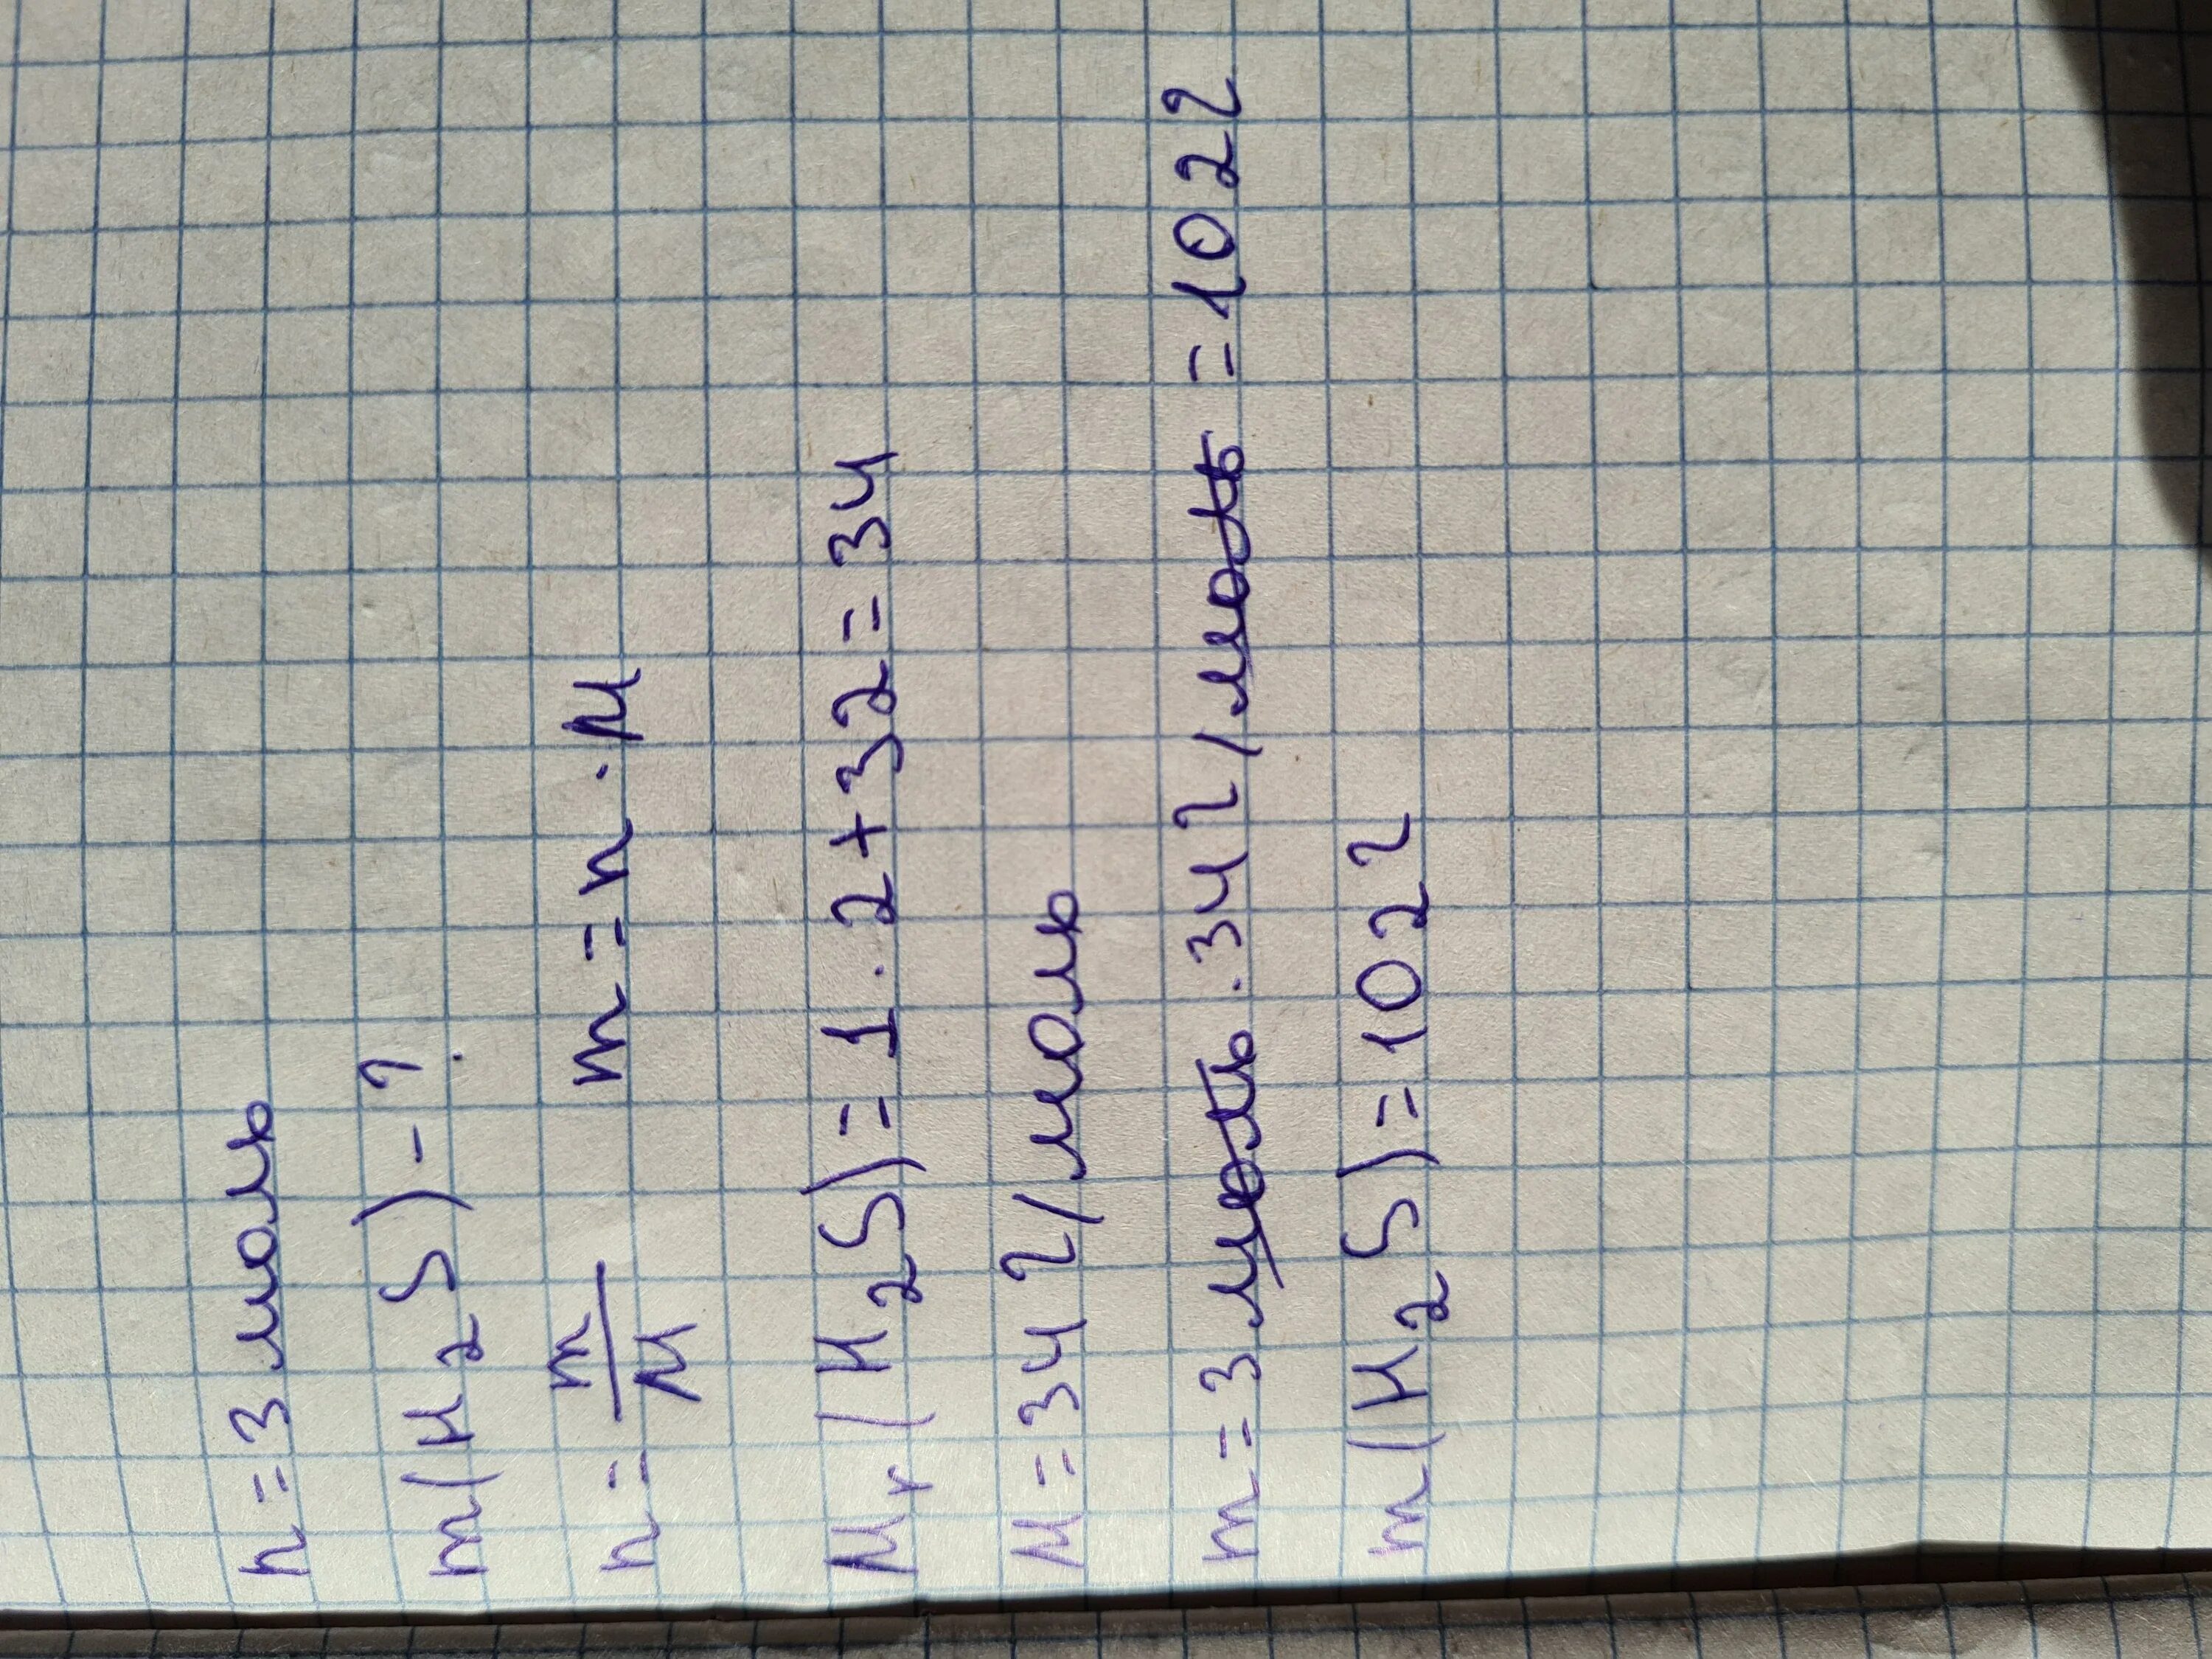 n = 3 моль
m(H2S) - ?
n = m/M m = n · M
Mr(H2S) = 1 · 2 + 32 = 34
M = 34 г/моль
m = 3 моль · 34 г/моль = 102 г
m(H2S) = 102 г